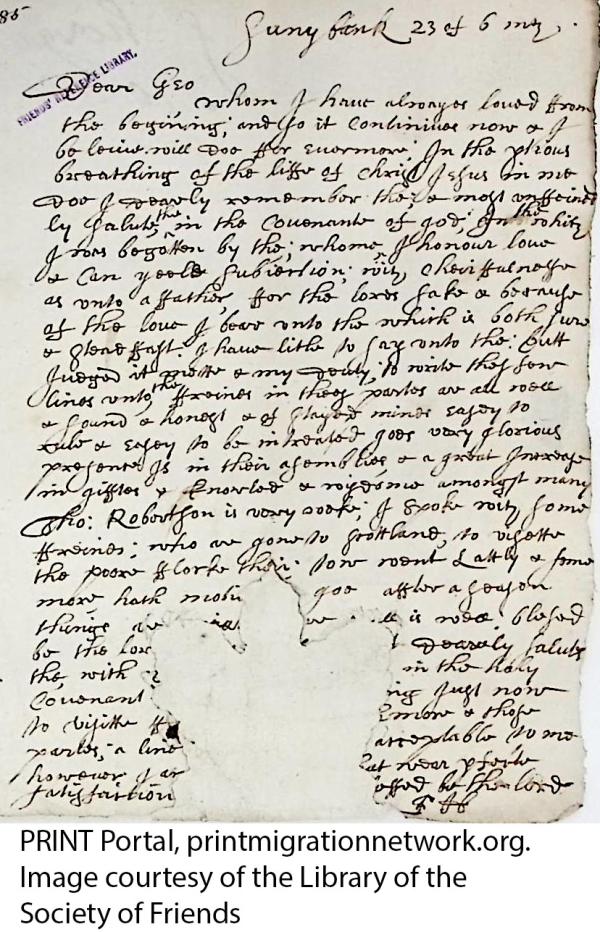 86
Suny bank 23 of 6 mo
FRIENDS' REFERENCE LIBRARY.
Dear Geo
whom I haue alwayes loued from
the begining; and so it continues now & I
beleiue will doe for euermore; In the
breathing of the liffe of christ Jesus in me
Doe I dearly remember thee & most
ly salute the in the Couenant of god In the which
I was begotten by the; whome I honour loue
& Can yeeld subiection; with cheirfulnesse
as unto a father, for the lords sake & becaus
of the loue I bear unto the which is both pure
& I haue litle to say unto the: But
it & my to write thes few
lines unto the freinds in thes partes are all well
& sound & honest & of minds easy to
rule & easy to be intreated gods very glorious
presents is in their asemblies & a great Increas
in gifftes & knowled & wisdome amongst many
Tho: Robertson is very well; I spoke with some
freinds; who are gone to scotland, to visitte
the poor flocke their. Jon went Lattly & some
more hath goe after a season
things ar is well. blesed
be the Lor I Dearely salute
the, with in the Holy
Couenant ing Just now
to visitte th & these
partes, a line to me
howeuer
satisfaction the Lord
PRINT Portal, printmigrationnetwork.org.
Image courtesy of the Library of the
Society of Friends